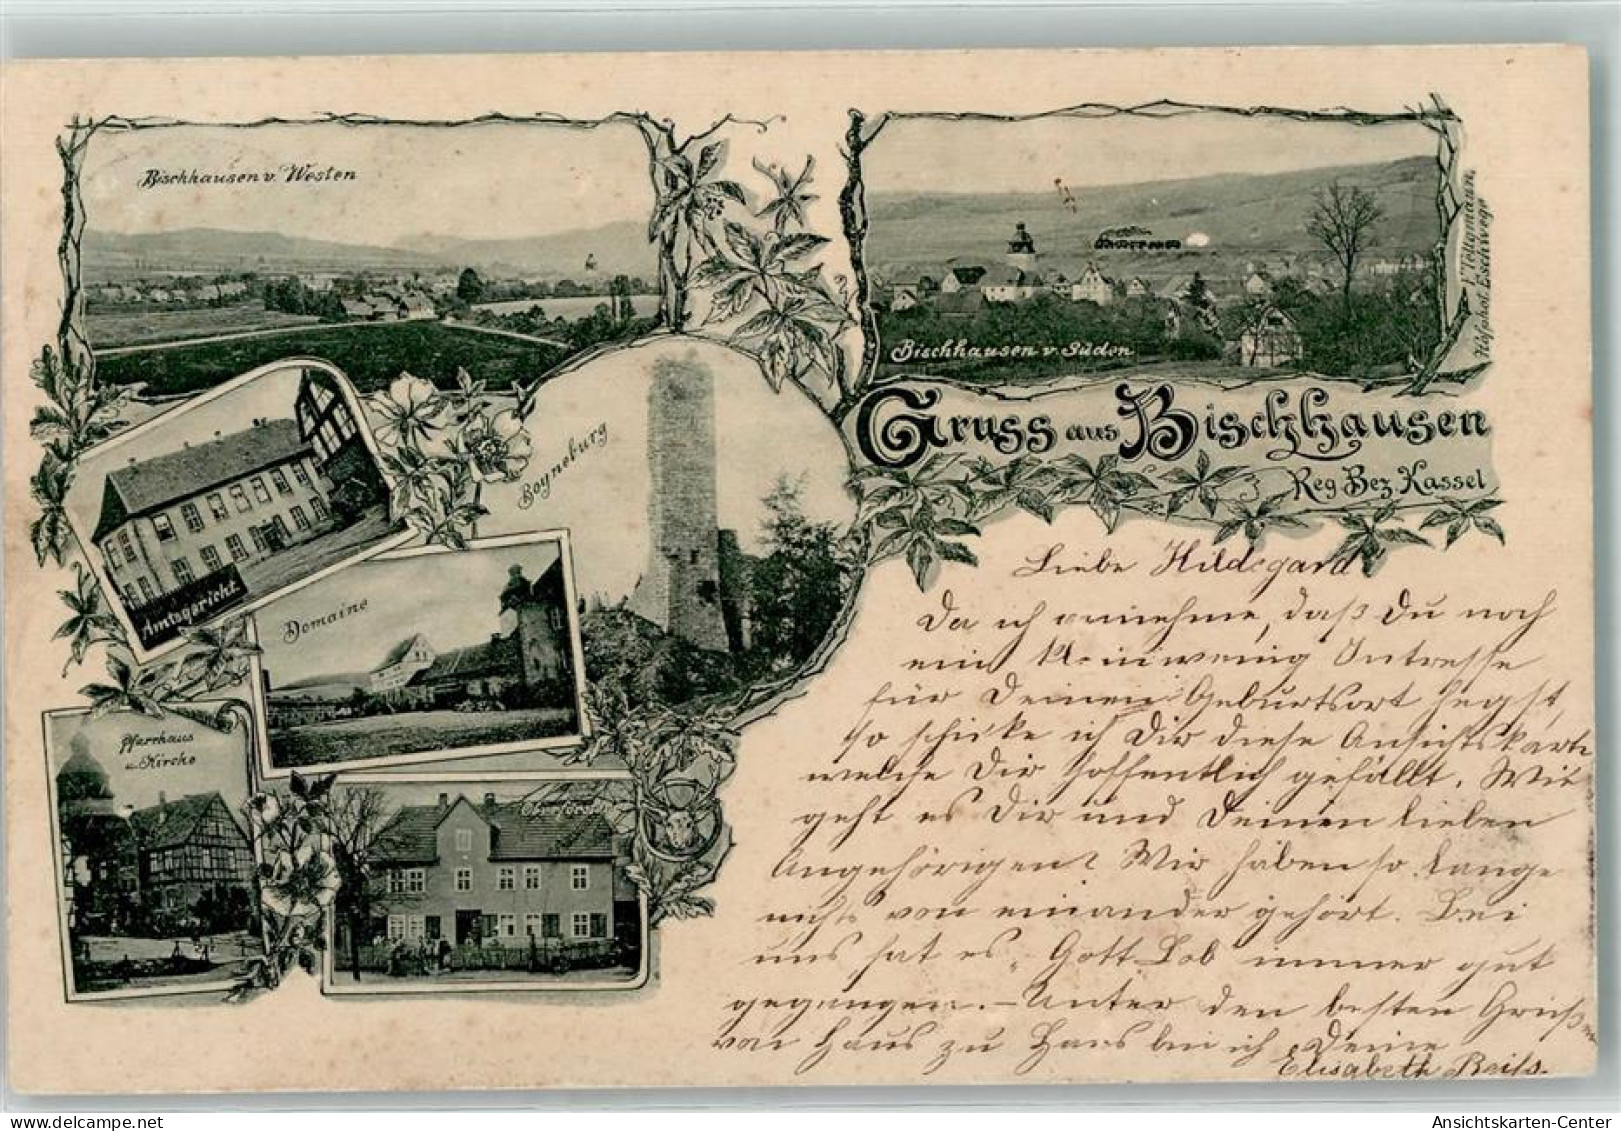 Bischhausen v. Westen
Bischhausen v. Süden
Hofphot. Eschwege
Gruss aus Bischhausen
Reg. Bez. Kassel
Boyneburg
Amtsgericht.
Domaine
Pfarrhaus
u. Kirche
Liebe Hildegard
Da ich annehme, daß Du noch
ein klein wenig Intresse
für Deinen Geburtsort hegst,
so schicke ich Dir diese Ansichtskarte
welche Dir hoffentlich gefällt. Wie
geht es Dir und Deinen lieben
Angehörigen? Wir haben so lange
nichts von einander gehört. Bei
uns hat es, Gott Lob immer gut
gegangen. – Unter den besten Grüßen
von Haus zu Haus bin ich Deine
Elisabeth
Ansichtskarten-Center